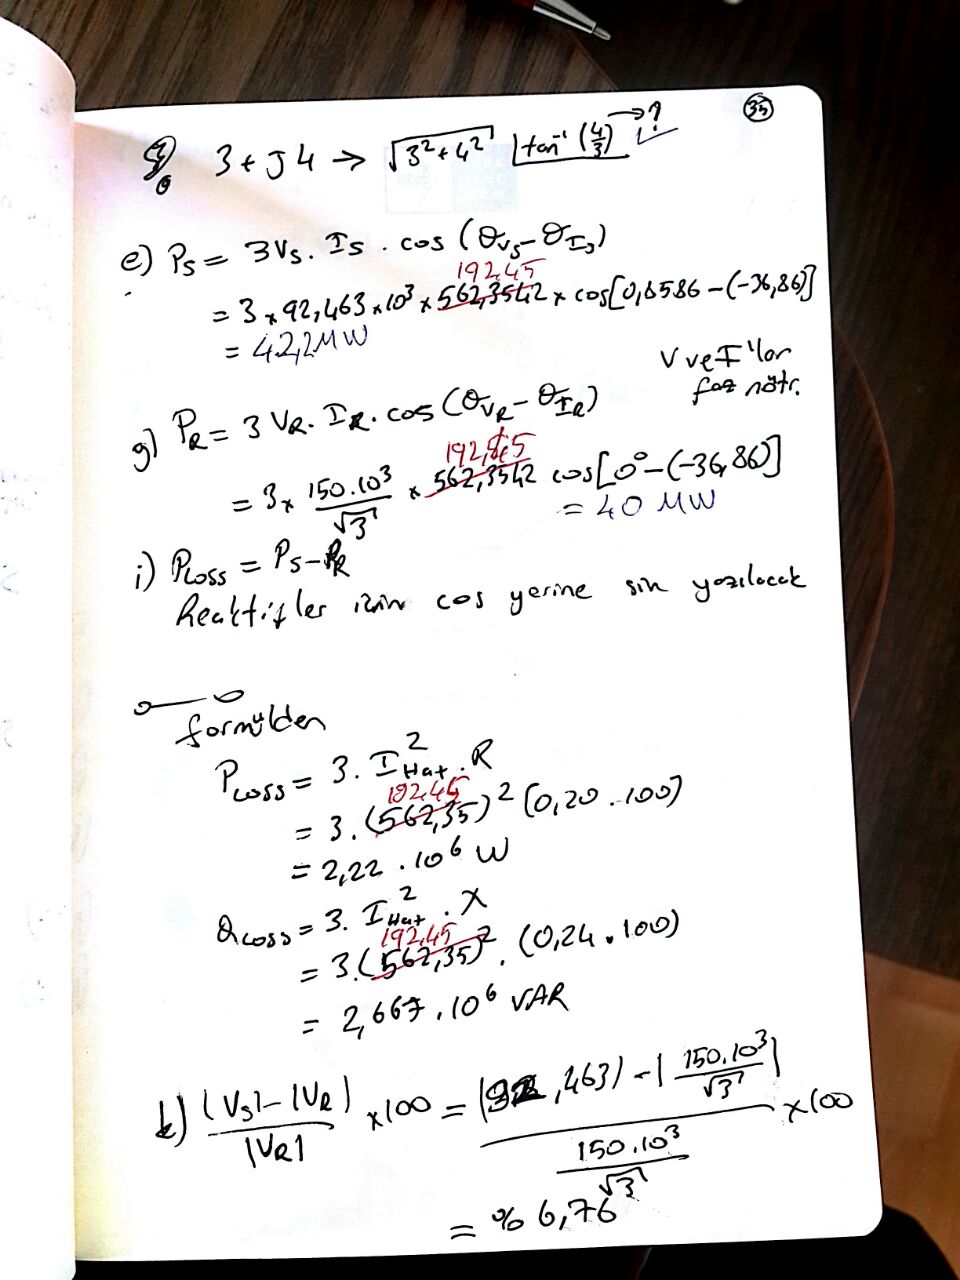 35
3 + J4 → √3²+4² |tan⁻¹ (4/3) → ?
e) Ps = 3Vs. Is . cos (θVs - θIs)
192,45
= 3 x 92,463 x 10³ x 562,3542 x cos[0,8586 - (-36,86)]
= 42,2 MW
V ve I'lar
faz nötr.
g) PR = 3 VR. IR. cos (θVR - θIR)
192,45
= 3 x 150.10³/√3 x 562,3542 cos[0° - (-36,86)]
= 40 MW
i) Ploss = Ps - PR
Reaktifler için cos yerine sin yazılacak
formülden
Ploss = 3. I²Hat . R
192,45
= 3. (562,35)² (0,20 . 100)
= 2,22 . 10⁶ W
Qloss = 3. I²Hat . X
192,45
= 3.(562,35)² . (0,24 . 100)
= 2,667 . 10⁶ VAR
k) |Vs| - |VR| / |VR| x100 = |92,463| - |150.10³/√3| / 150.10³/√3 x100
= % 6,76